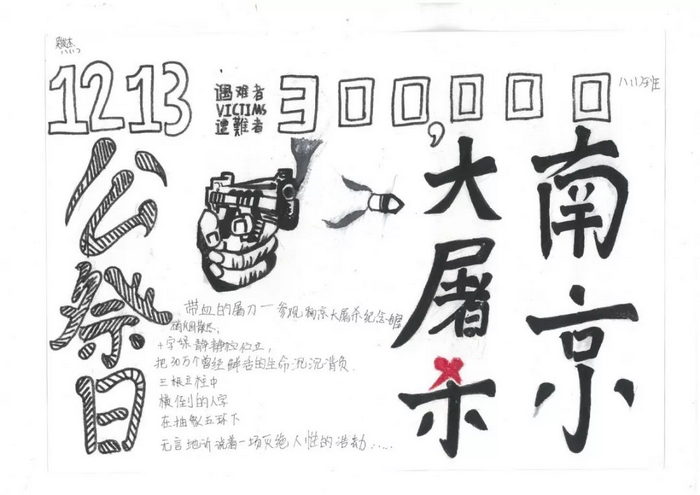 1213
遇难者
VICTIMS
遭難者
300,000
八八班
南京
大屠杀
公祭日
带血的屠刀一参观南京大屠杀纪念馆
硝烟散去,
十字架静静伫立,
把30万个曾经鲜活的生命沉沉背负.
三根立柱中
横倒的人字
在抽象五环下
无言地诉说着一场灭绝人性的浩劫……